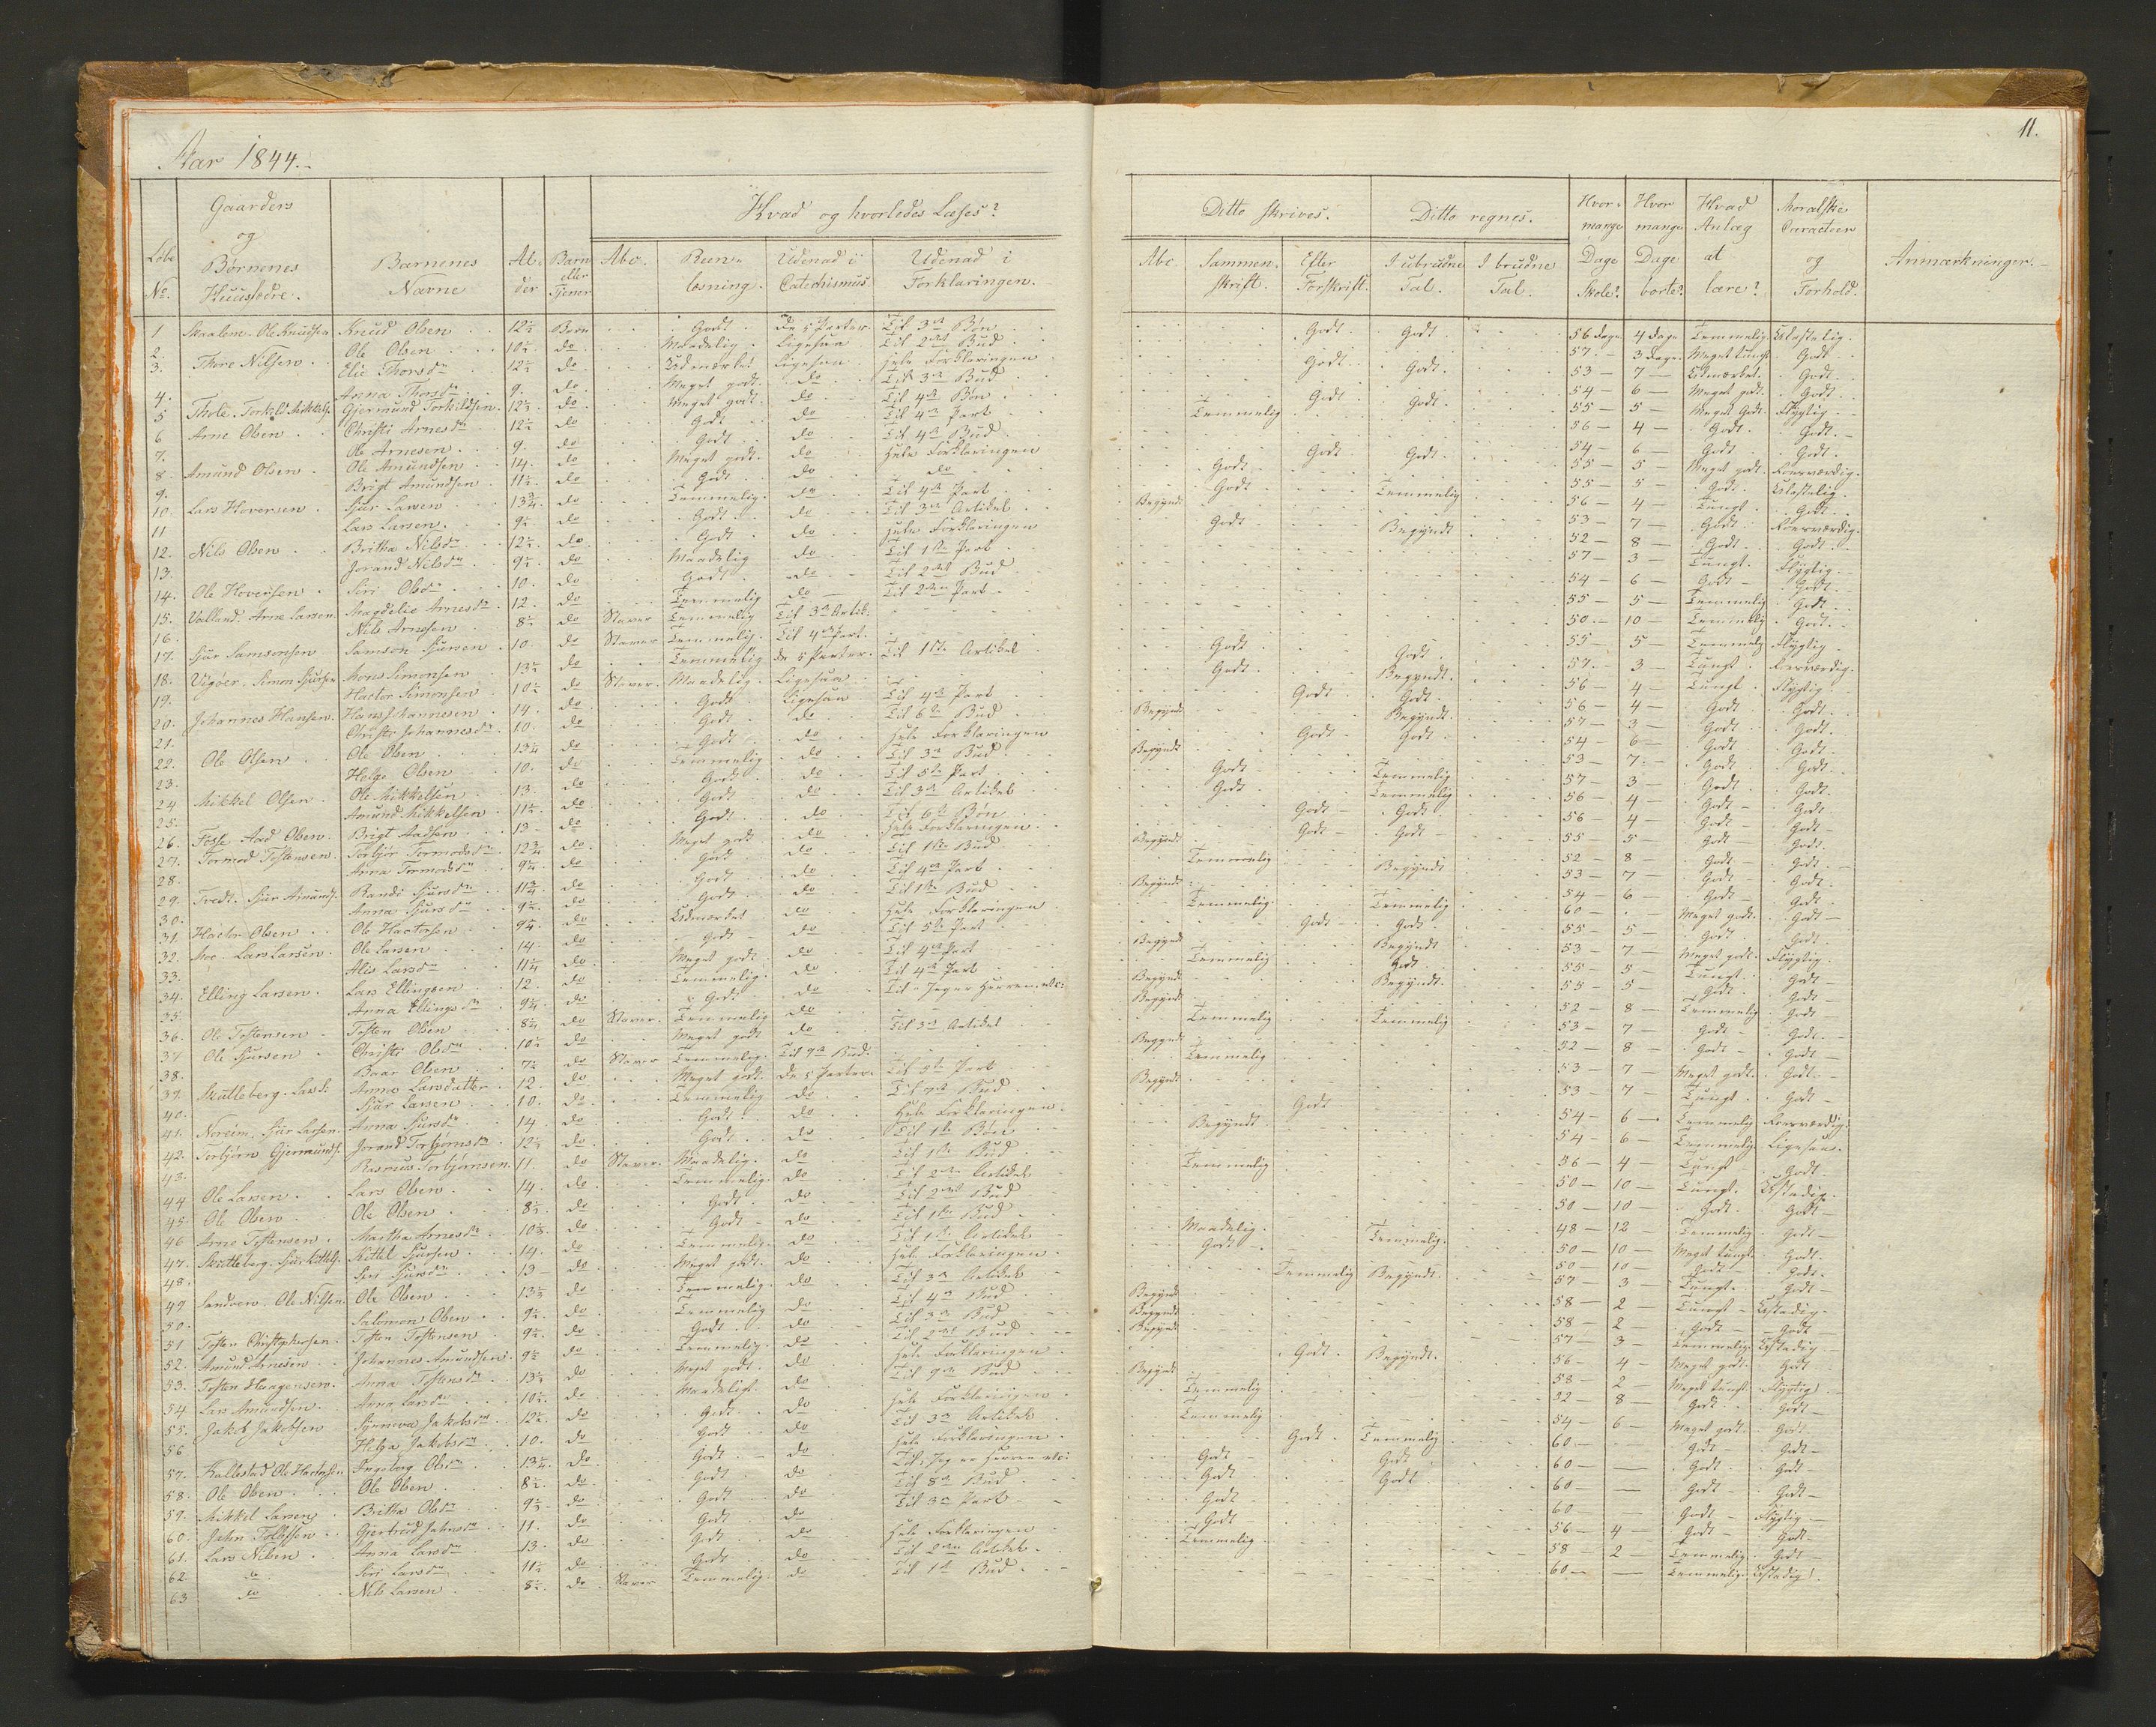 11.
Aar 1844.
Løbe No. Gaarders og Børnenes Huusfædre. Barnenes Navne Alder Barn eller Tjener Hvad og hvorledes Læses?
Abc. Reenlæsning. Udenad i Catechismus. Udenad i Forklaringen.
Ditto skrives. Ditto regnes.
Abc. Sammenskrift. Efter Forskrift. I ubrudne Tal. I brudne Tal.
Hvor mange Dage Skole? Hvor mange Dage borte? Hvad Anlæg at lære? Moralske Caracteer og Forhold. Anmærkninger.
1 Skaalem. Ole Knudsen Knud Olsen 12½ Barn Godt de 5 Parter Til 3die Bøn Godt Godt 56 dage 4 dage Temmelig Ulastelig
2. Ole Olsen 10½ do Maadelig Ligesaa Til 2det Bud 57 3 dage Meget tungt Godt
3. Thore Nilsen Elie Thorsdr 12½ do Udmærket Ligesaa Hele Forklaringen Godt Godt 53 7 Udmærket Godt
4. Anna Thorsdr 9. do Meget godt do Til 3die Bud 54 6 Meget godt Godt
5 Thole. Torkild Mikkels. Gjermund Torkildsen 12½ do Meget godt do Til 4de Bøn Godt Godt 55 5 Meget Godt Flygtig
6 Arne Olsen Christi Arnesdr 12½ do Godt do Til 4de Part Temmelig 56 4 Godt Godt
7. Ole Arnesen 9. do Godt do Til 4de Bud 54 6 Godt Godt
8. Amund Olsen Ole Amundsen 14. do Meget godt do Hele Forklaringen Godt Godt 55 5 Meget godt Roesværdig
9. Brigt Amundsen 11½ do Godt do do Godt 55 5 Godt Ulastelig
10. Lars Hoversen Sjur Larsen 13¾ do Temmelig do Til 4de Part Godt Temmelig 56 4 Tungt Godt
11 Lars Larsen 9½ do Godt do Til 3die Artikel Begyndt 53 7 Godt Roesværdig
12. Nils Olsen Britha Nilsdr 12½ do Godt do Hele Forklaringen Godt Begyndt 52 8 Godt Godt
13. Jorand Nilsdr 9½ do Maadelig do Til 1ste Part 57 3 Tungt Flygtig
14. Ole Hoversen Siri Olsdr 10. do Godt do Til 2det Bud 54 6 Godt Godt
15. Valland. Arne Larsen Magdelie Arnesdr 12. do Temmelig do Til 2den Part 55 5 Temmelig Godt
16. Nils Arnesen 8½ do Staver Temmelig Til 3die Artik. 50 10 Temmelig Godt
17. Sjur Samsonsen Samson Sjursen 10 do Staver Temmelig Til 4de Part 55 5 Temmelig Flygtig
18. Vigøer. Simon Sjursen Mons Simonsen 13½ do Temmelig de 5 Parter Til 1ste Artikel Godt Godt 57 3 Tungt Roesværdig
19. Hactor Simonsen 10½ do Staver Maadelig Ligesaa Godt Begyndt 56 4 Tungt Flygtig
20. Johannes Hansen Hans Johannesen 14. do Godt Ligesaa Til 4de Part Godt Godt 56 4 Godt Godt
21. Christi Johannesdr 10. do Godt do Til 6te Bud Begyndt Begyndt 57 3 Godt Godt
22. Ole Olsen Ole Olsen 13¼ do Godt do Hele Forklaringen Godt Godt 54 6 Godt Godt
23. Helge Olsen 10. do Temmelig do Til 3die Bud Begyndt 53 7 Godt Godt
24 Mikkel Olsen Ole Mikkelsen 13. do Godt do Til 5te Part Godt Temmelig 57 3 Godt Godt
25. Amund Mikkelsen 11½ do Godt do Til 3die Artikel Godt Temmelig 56 4 Godt Godt
26. Fosse Aad Olsen Brigt Aadsen 13 do Godt do Til 6te Bøn Godt Godt 56 4 Godt Godt
27. Tormod Tostensen Torbjør Tormodsdr 12¾ do Meget godt do Hele Forklaringen Godt Godt 55 5 Godt Godt
28. Anna Tormodsdr 9¾ do Godt do Til 1ste Bud Begyndt 52 8 Godt Godt
29. Tredt. Sjur Amunds. Randi Sjursdr 11¾ do Godt do Til 4de Part Temmelig Begyndt 53 7 Godt Godt
30. Anna Sjursdr 9½ do Godt do Til 1ste Bud Begyndt 54 6 Godt Godt
31. Hactor Olsen Ole Hactorsen 9¼ do Udmærket do Hele Forklaringen Temmelig Temmelig 60 Meget godt Godt
32. Moe. Lars Larsen Ole Larsen 14 do Godt do Til 5te Part Godt Godt 55 5 Godt Godt
33. Alis Larsdr 11¼ do Meget godt do Til 4de Part Begyndt Begyndt 53 7 Meget godt Flygtig
34. Elling Larsen Lars Ellingsen 12. do Temmelig do Til 4de Part Temmelig Godt 55 5 Tungt Godt
35. Anna Ellingsdr 9½ do Godt do Til "Jeg er Herren etc: Begyndt Begyndt 55 5 Godt Godt
36. Ole Tostensen Tosten Olsen 8¾ do Staver Temmelig do Begyndt 52 8 Temmelig Godt
37 Ole Sjursen Christi Olsdr 10½ do Meget godt do Til 3die Artikel Temmelig Temmelig 53 7 Godt Godt
38. Baar Olsen 7½ do Staver Temmelig Til 9de Bud Begyndt 52 8 Godt Godt
39. Skutleberg. Lars S. Anna Larsdatter 12. do Meget godt de 5 Parter Til 5te Part Temmelig 53 7 Meget godt Godt
40. Sjur Larsen 10. do Temmelig do Til 7de Bud Begyndt 53 7 Tungt Godt
41. Noreim. Sjur Larsen Anna Sjursdr 14 do Godt do Hele Forklaringen Godt 54 6 Temmelig Roesværdig
42. Torbjørn Gjermunds. Jorand Torbjørnsdr 12½ do Godt do Til 1ste Bøn Begyndt 54 6 Temmelig Ligesaa
43. Rasmus Torbjørnsen 11. do Staver Maadelig do Til 1ste Bud 56 4 Tungt Godt
44 Ole Larsen Lars Olsen 14. do Temmelig do Til 2den Artikel Temmelig 50 10 Tungt Ustadig
45. Ole Olsen Ole Olsen 8½ do Godt do Til 2det Bud 50 10 Godt Godt
46 Arne Tostensen Martha Arnesdr 10½ do Godt do Til 1ste Bud 48 12 Temmelig Godt
47. Skutleberg. Sjur Kittels. Kittel Sjursen 14. do Temmelig do Til 1ste Artikel Maadelig Temmelig 50 10 Meget tungt Godt
48. Siri Sjursdr 13 do Meget godt do Hele Forklaringen Godt 50 10 Godt Godt
49 Sandven. Ole Nilsen Ole Olsen 13½ do Temmelig do Til 3die Artikel Temmelig Begyndt 57 3 Tungt Godt
50. Salomon Olsen 9½ do Temmelig do Til 4de Bud Begyndt 58 2 Tungt Ustadig
51 Tosten Christophersen Tosten Tostensen 9½ do Godt do Til 3die Bud Begyndt 58 2 Godt Godt
52. Amund Arnesen Johannes Amundsen 9½ do Temmelig do Til 2det Bud Begyndt 57 3 Temmelig Ustadig
53. Tosten Haagensen Anna Tostensdr 13½ do Meget godt do Hele Forklaringen Godt Begyndt 56 4 Meget godt Godt
54 Lars Amundsen Anna Larsdr 10½ do Maadeligt do Til 9de Bud Begyndt 58 2 Meget tungt Flygtig
55. Jakob Jakobsen Synneva Jakobsdr 12½ do Godt do Hele Forklaringen Temmelig 52 8 Godt Godt
56 Helga Jakobsdr 10. do Godt do Til 3die Artikel Temmelig 54 6 Meget godt Godt
57. Kallestad Ole Hactorsen Ingeborg Olsdr 13¼ do Godt do Hele Forklaringen Godt Temmelig 60 Godt Godt
58. Ole Olsen Ole Olsen 8½ do Godt do Til "Jeg er Herren etc: Godt Godt 60 Godt Godt
59. Mikkel Larsen Britha Olsdr 9½ do Godt do Til 8de Bud Godt Godt 60 Godt Godt
60. John Tollefsen Gjertrud Johnsdr 11. do Godt do Til 3die Part Godt 60 Godt Flygtig
61. Lars Nilsen Anna Larsdr 13. do Godt do Hele Forklaringen Godt 56 4 Godt Godt
62. do Siri Larsdr 11½ do Godt do Til 2den Artikel Temmelig 58 2 Temmelig Godt
63 do Nils Larsen 8½ do Staver Temmelig do Til 1ste Bud 60 Temmelig Ustadig